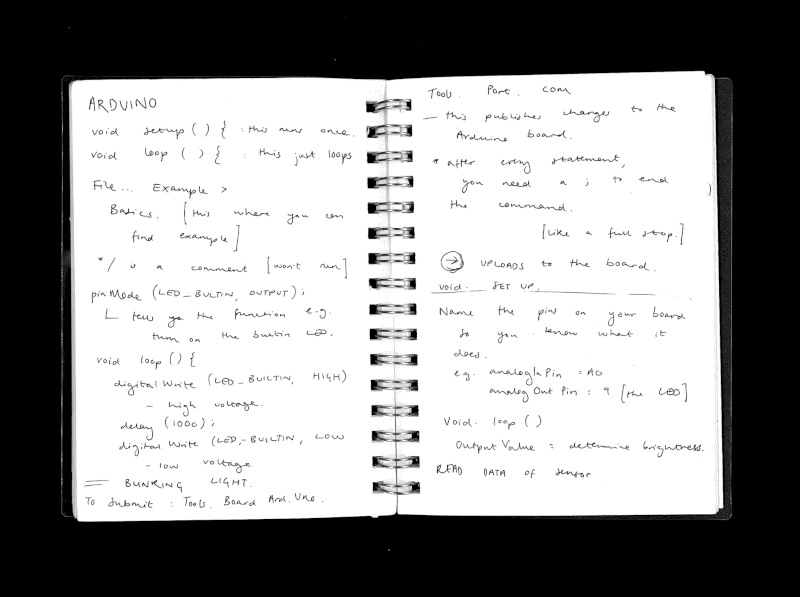 ARDUINO
void setup ( ) { : this runs once.
void loop ( ) { : this just loops
File... Example >
Basics. [this where you can
find example]
*/ is a comment [won't run]
pinMode (LED_BUILTIN, OUTPUT) ;
tells you the function e.g.
turn on the builtin LED.
void loop () {
digital Write (LED_BUILTIN, HIGH)
- high voltage.
delay (1000) ;
digital Write (LED_BUILTIN, LOW
- low voltage
= BLINKING LIGHT.
To Submit : Tools. Board Ard. Uno.
Tools. Port. COM
— this publishes changes to the
Arduino board.
* after every statement,
you need a ; to end
the command.
[like a full stop.]
→ UPLOADS to the board.
void. SET UP.
Name the pins on your board
so you know what it
does.
e.g. analogInPin = A0
analog Out Pin : 9 [the LED]
Void. loop ( )
Output Value = determine brightness.
READ DATA OF sensor